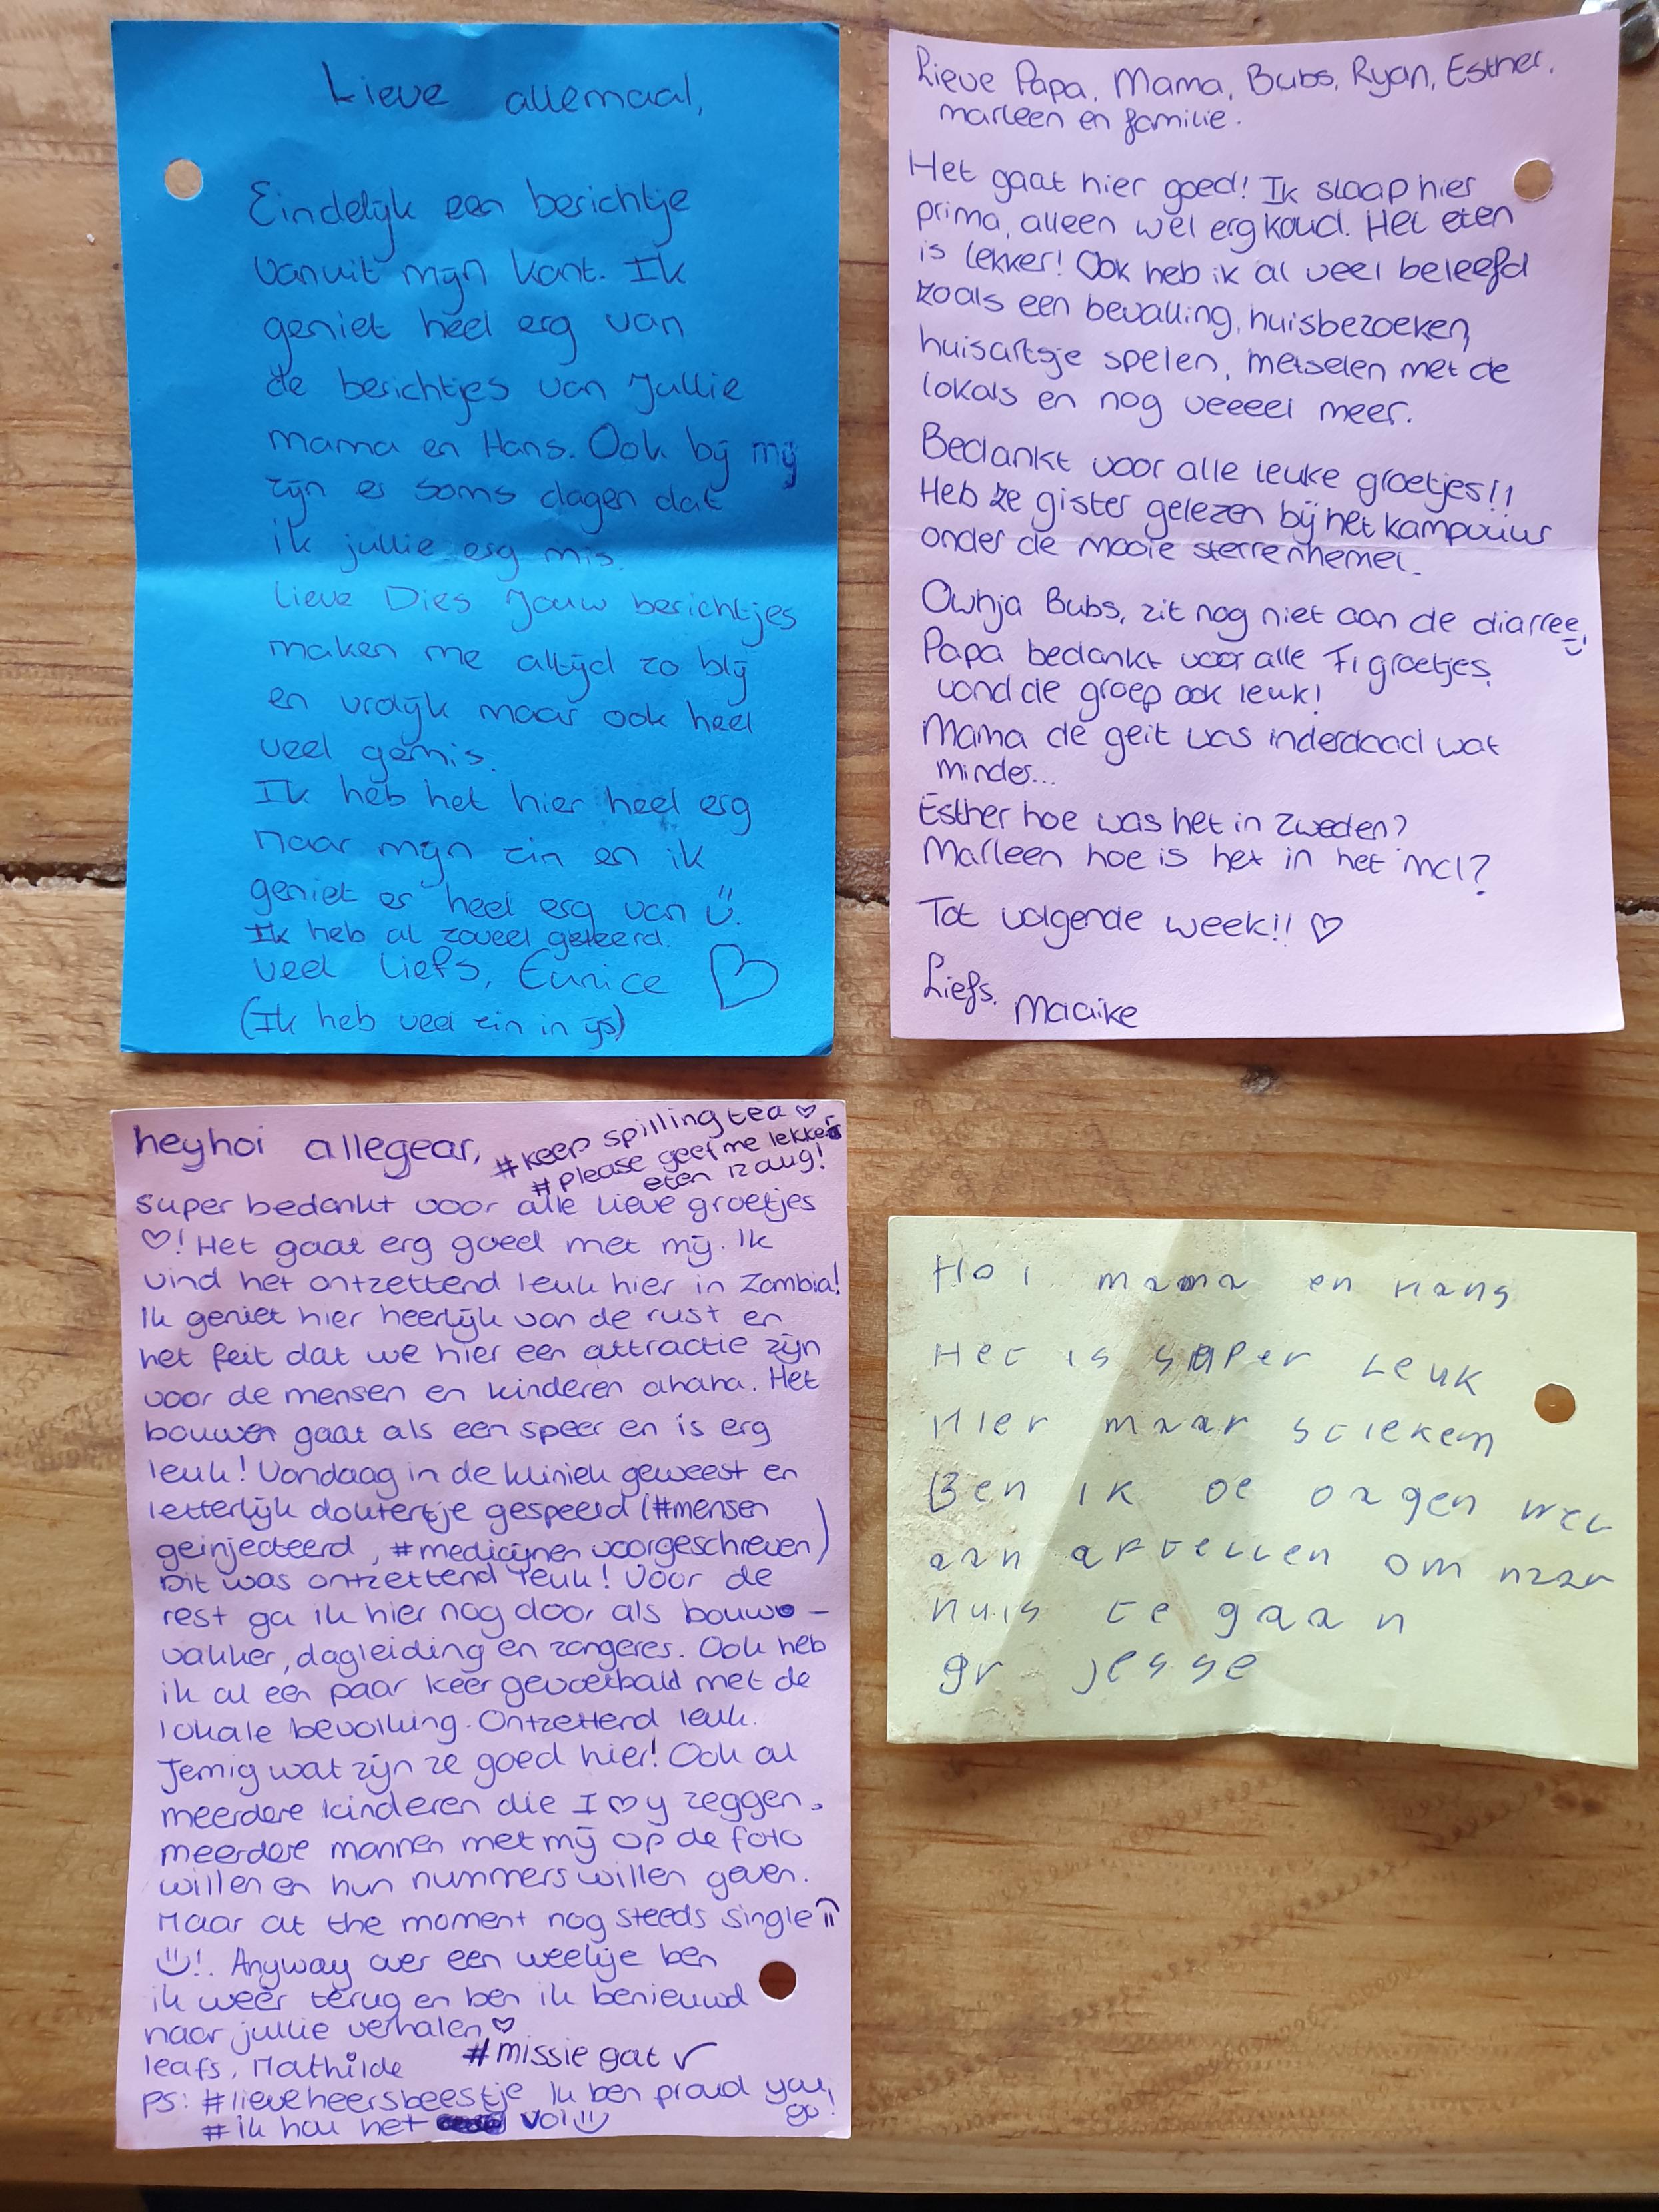 Lieve allemaal,
Eindelijk een berichtje
vanuit mijn kant. Ik
geniet heel erg van
de berichtjes van Jullie
mama en Hans. Ook bij mij
zijn er soms dagen dat
ik jullie erg mis.
Lieve Dies Jouw berichtjes
maken me altijd zo blij
en vrolijk maar ook heel
veel gemis.
Ik heb het hier heel erg
naar mijn zin en ik
geniet er heel erg van
Ik heb al zoveel geleerd.
veel liefs, Eunice
(Ik heb veel zin in ijs)
Lieve Papa, Mama, Bubs, Ryan, Esther,
marleen en familie.
Het gaat hier goed! Ik slaap hier
prima, alleen wel erg koud. Het eten
is lekker! Ook heb ik al veel beleefd
zoals een bevalling, huisbezoeken,
huisartsje spelen, metselen met de
lokals en nog veeeel meer.
Bedankt voor alle leuke groetjes!!
Heb ze gister gelezen bij het kampvuur
onder de mooie sterrenhemel.
Ownja Bubs, zit nog niet aan de diarree
Papa bedankt voor alle F1 groetjes,
vond de groep ook leuk!
Mama de geit was inderdaad wat
minder...
Esther hoe was het in Zweden?
Marleen hoe is het in het mcl?
Tot volgende week!! ♡
Liefs, Maaike
heyhoi allegear,
#keep spilling tea ♡
#please geef me lekker
eten 12 aug!
super bedankt voor alle lieve groetjes
♡! Het gaat erg goed met mij. Ik
vind het ontzettend leuk hier in Zambia!
Ik geniet hier heerlijk van de rust en
het feit dat we hier een attractie zijn
voor de mensen en kinderen ahaha. Het
bouwen gaat als een speer en is erg
leuk! Vandaag in de kliniek geweest en
letterlijk doktertje gespeeld (#mensen
geinjecteerd, #medicijnen voorgeschreven)
Dit was ontzettend leuk! Voor de
rest ga ik hier nog door als bouw-
vakker, dagleiding en zangeres. Ook heb
ik al een paar keer gevoetbald met de
lokale bevolking. Ontzettend leuk.
Jemig wat zijn ze goed hier! Ook al
meerdere kinderen die I ♡ y zeggen,
meerdere mannen met mij op de foto
willen en hun nummers willen geven.
Maar at the moment nog steeds single
!. Anyway over een weekje ben
ik weer terug en ben ik benieuwd
naar jullie verhalen ♡
leafs, Mathilde #missie gat ✓
PS: #lieveheersbeestje Ik ben proud you
go!
#ik hou het vol
Hoi mama en Hans
Het is super leuk
Hier maar stiekem
Ben ik de dagen wel
aan aftellen om naar
huis te gaan
gr jesse